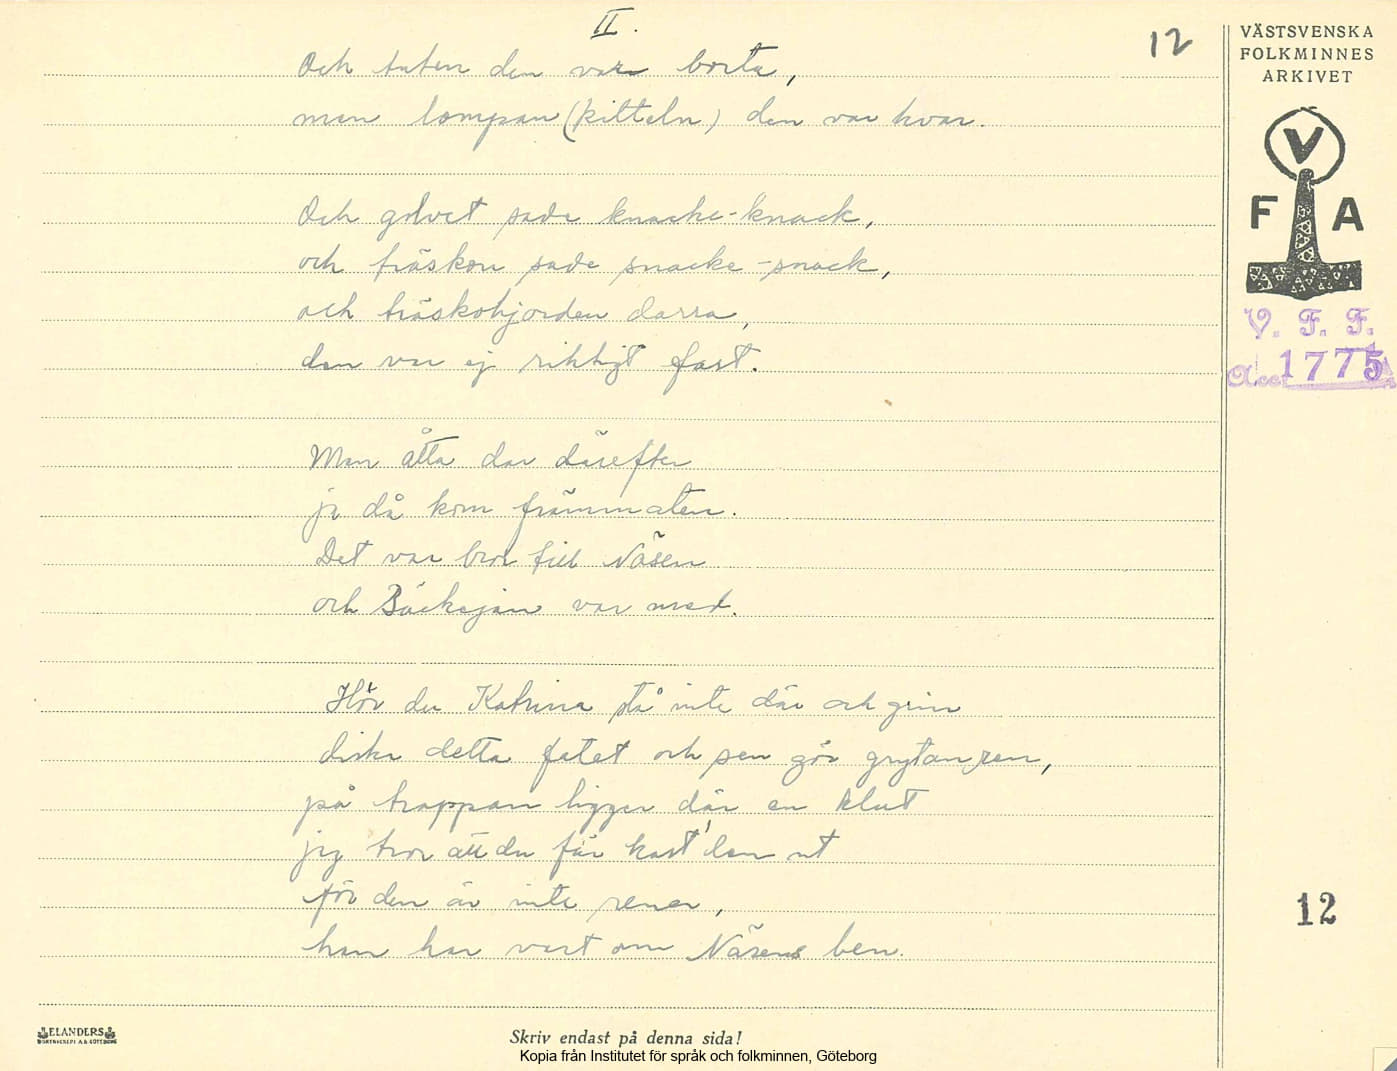 II.
12
Och tuten den var borta,
men lompan (kilteln) den var kvar.
Och golvet sade knacke-knack,
och träskon sade snacke-snack,
och träskohjorden darra,
den var ej riktigt fast.
Men åtta dar därefter
ja då kom främmaten.
Det var bror till Näsen
och Bäcksjän var med.
Hör du Katrina stå inte där och grin
diska detta fatet och sen gör grytan ren,
på trappan ligger där en klut
jag tror att du får kast'den ut
för den är inte rener,
han har vart om Näsens ben.
VÄSTSVENSKA
FOLKMINNES
ARKIVET
V
F A
V. F. F.
Acc. 1775
12
ELANDERS
BOKTRYCKERI A.B. GÖTEBORG
Skriv endast på denna sida!
Kopia från Institutet för språk och folkminnen, Göteborg